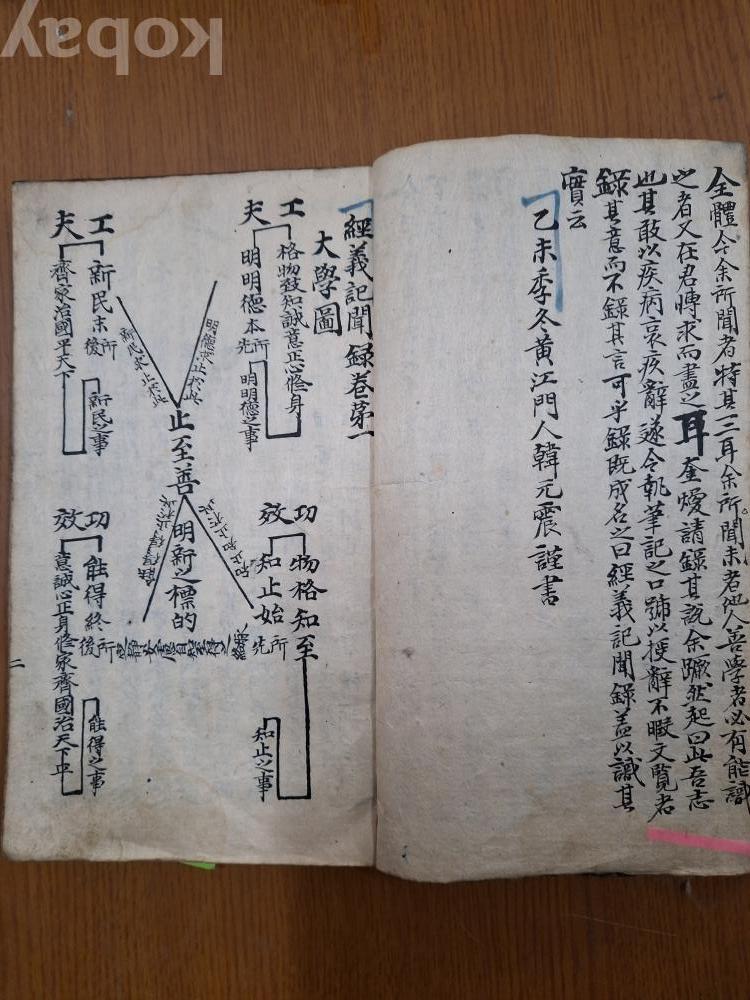 全體今余所聞者特其二三耳余所聞未者他人善學者必有能識
之者又在君博求而盡之耳奎燮請錄其說余蹶然起曰此吾志
也其敢以疾病哀疚辭遂令執筆記之口號以授辭不暇文覽者
錄其意而不錄其言可乎錄旣成名之曰經義記聞錄盖以識其
實云
乙未季冬黃江門人韓元震謹書
經義記聞錄卷苐一
大學圖
工夫
格物致知誠意正心修身
明明德本所先
明明德之事
明德求止於此
新民求止於此
工夫
新民末所後
齊家治國平天下
新民之事
止至善
明新之標的
功效
物格知至
知止始所先
知止之事
知止知止於此
功效
能得終所後
意誠心正身修家齊國治天下平
能得之事
二
kobay